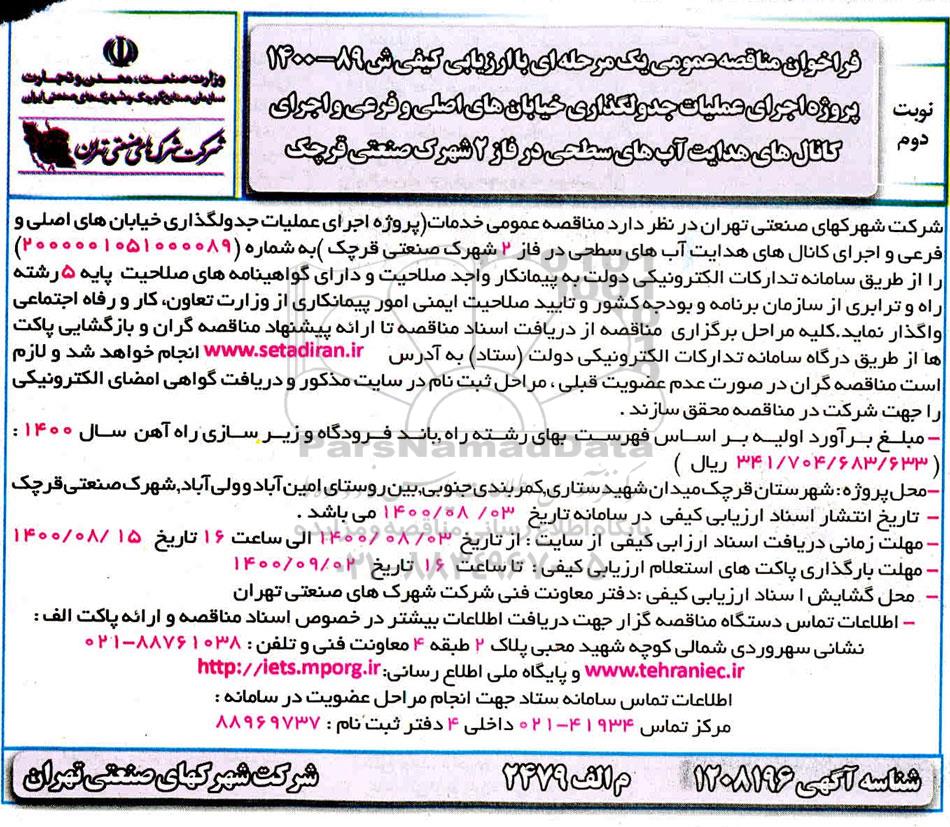 وزارت صنعت، معدن و تجارت
سازمان صنایع کوچک و شهرک‌های صنعتی ایران
شرکت شهرک‌های صنعتی تهران
فراخوان مناقصه عمومی یک مرحله ای با ارزیابی کیفی ش ۸۹-۱۴۰۰
پروژه اجرای عملیات جدولگذاری خیابان های اصلی و فرعی و اجرای
کانال های هدایت آب های سطحی در فاز ۲ شهرک صنعتی قرچک
نوبت
دوم
شرکت شهرکهای صنعتی تهران در نظر دارد مناقصه عمومی خدمات(پروژه اجرای عملیات جدولگذاری خیابان های اصلی و
فرعی و اجرای کانال های هدایت آب های سطحی در فاز ۲ شهرک صنعتی قرچک )به شماره (۲۰۰۰۰۰۱۰۵۱۰۰۰۰۸۹)
را از طریق سامانه تدارکات الکترونیکی دولت به پیمانکار واجد صلاحیت و دارای گواهینامه های صلاحیت پایه ۵ رشته
راه و ترابری از سازمان برنامه و بودجه کشور و تایید صلاحیت ایمنی امور پیمانکاری از وزارت تعاون، کار و رفاه اجتماعی
واگذار نماید.کلیه مراحل برگزاری مناقصه از دریافت اسناد مناقصه تا ارائه پیشنهاد مناقصه گران و بازگشایی پاکت
ها از طریق درگاه سامانه تدارکات الکترونیکی دولت (ستاد) به آدرس www.setadiran.ir انجام خواهد شد و لازم
است مناقصه گران در صورت عدم عضویت قبلی ، مراحل ثبت نام در سایت مذکور و دریافت گواهی امضای الکترونیکی
را جهت شرکت در مناقصه محقق سازند .
- مبلغ برآورد اولیه بر اساس فهرست بهای رشته راه ,باند فرودگاه و زیر سازی راه آهن سال ۱۴۰۰ :
( ۳۴۱/۷۰۴/۶۸۳/۶۳۳ ریال )
-محل پروژه : شهرستان قرچک میدان شهید ستاری,کمربندی جنوبی,بین روستای امین آباد و ولی آباد,شهرک صنعتی قرچک
- تاریخ انتشار اسناد ارزیابی کیفی در سامانه تاریخ ۱۴۰۰/۰۸/۰۳ می باشد .
- مهلت زمانی دریافت اسناد ارزابی کیفی از سایت : از تاریخ ۱۴۰۰/۰۸/۰۳ الی ساعت ۱۶ تاریخ ۱۴۰۰/۰۸/۱۵
- مهلت بارگذاری پاکت های استعلام ارزیابی کیفی : تا ساعت ۱۶ تاریخ ۱۴۰۰/۰۹/۰۲
- محل گشایش اسناد ارزیابی کیفی :دفتر معاونت فنی شرکت شهرک های صنعتی تهران
- اطلاعات تماس دستگاه مناقصه گزار جهت دریافت اطلاعات بیشتر در خصوص اسناد مناقصه و ارائه پاکت الف :
نشانی سهروردی شمالی کوچه شهید محبی پلاک ۲ طبقه ۴ معاونت فنی و تلفن : ۸۸۷۶۱۰۳۸-۰۲۱
www.tehraniec.ir و پایگاه ملی اطلاع رسانی: http://iets.mporg.ir
اطلاعات تماس سامانه ستاد جهت انجام مراحل عضویت در سامانه :
مرکز تماس ۴۱۹۳۴-۰۲۱ داخلی ۴ دفتر ثبت نام : ۸۸۹۶۹۷۳۷
شناسه آگهی ۱۲۰۸۱۹۶ م الف ۲۴۷۹ شرکت شهرکهای صنعتی تهران
ParsNamadData
پایگاه اطلاع رسانی مناقصه و مزایده
۰۲۱-۸۸۳۴۹۶۷۰-۵